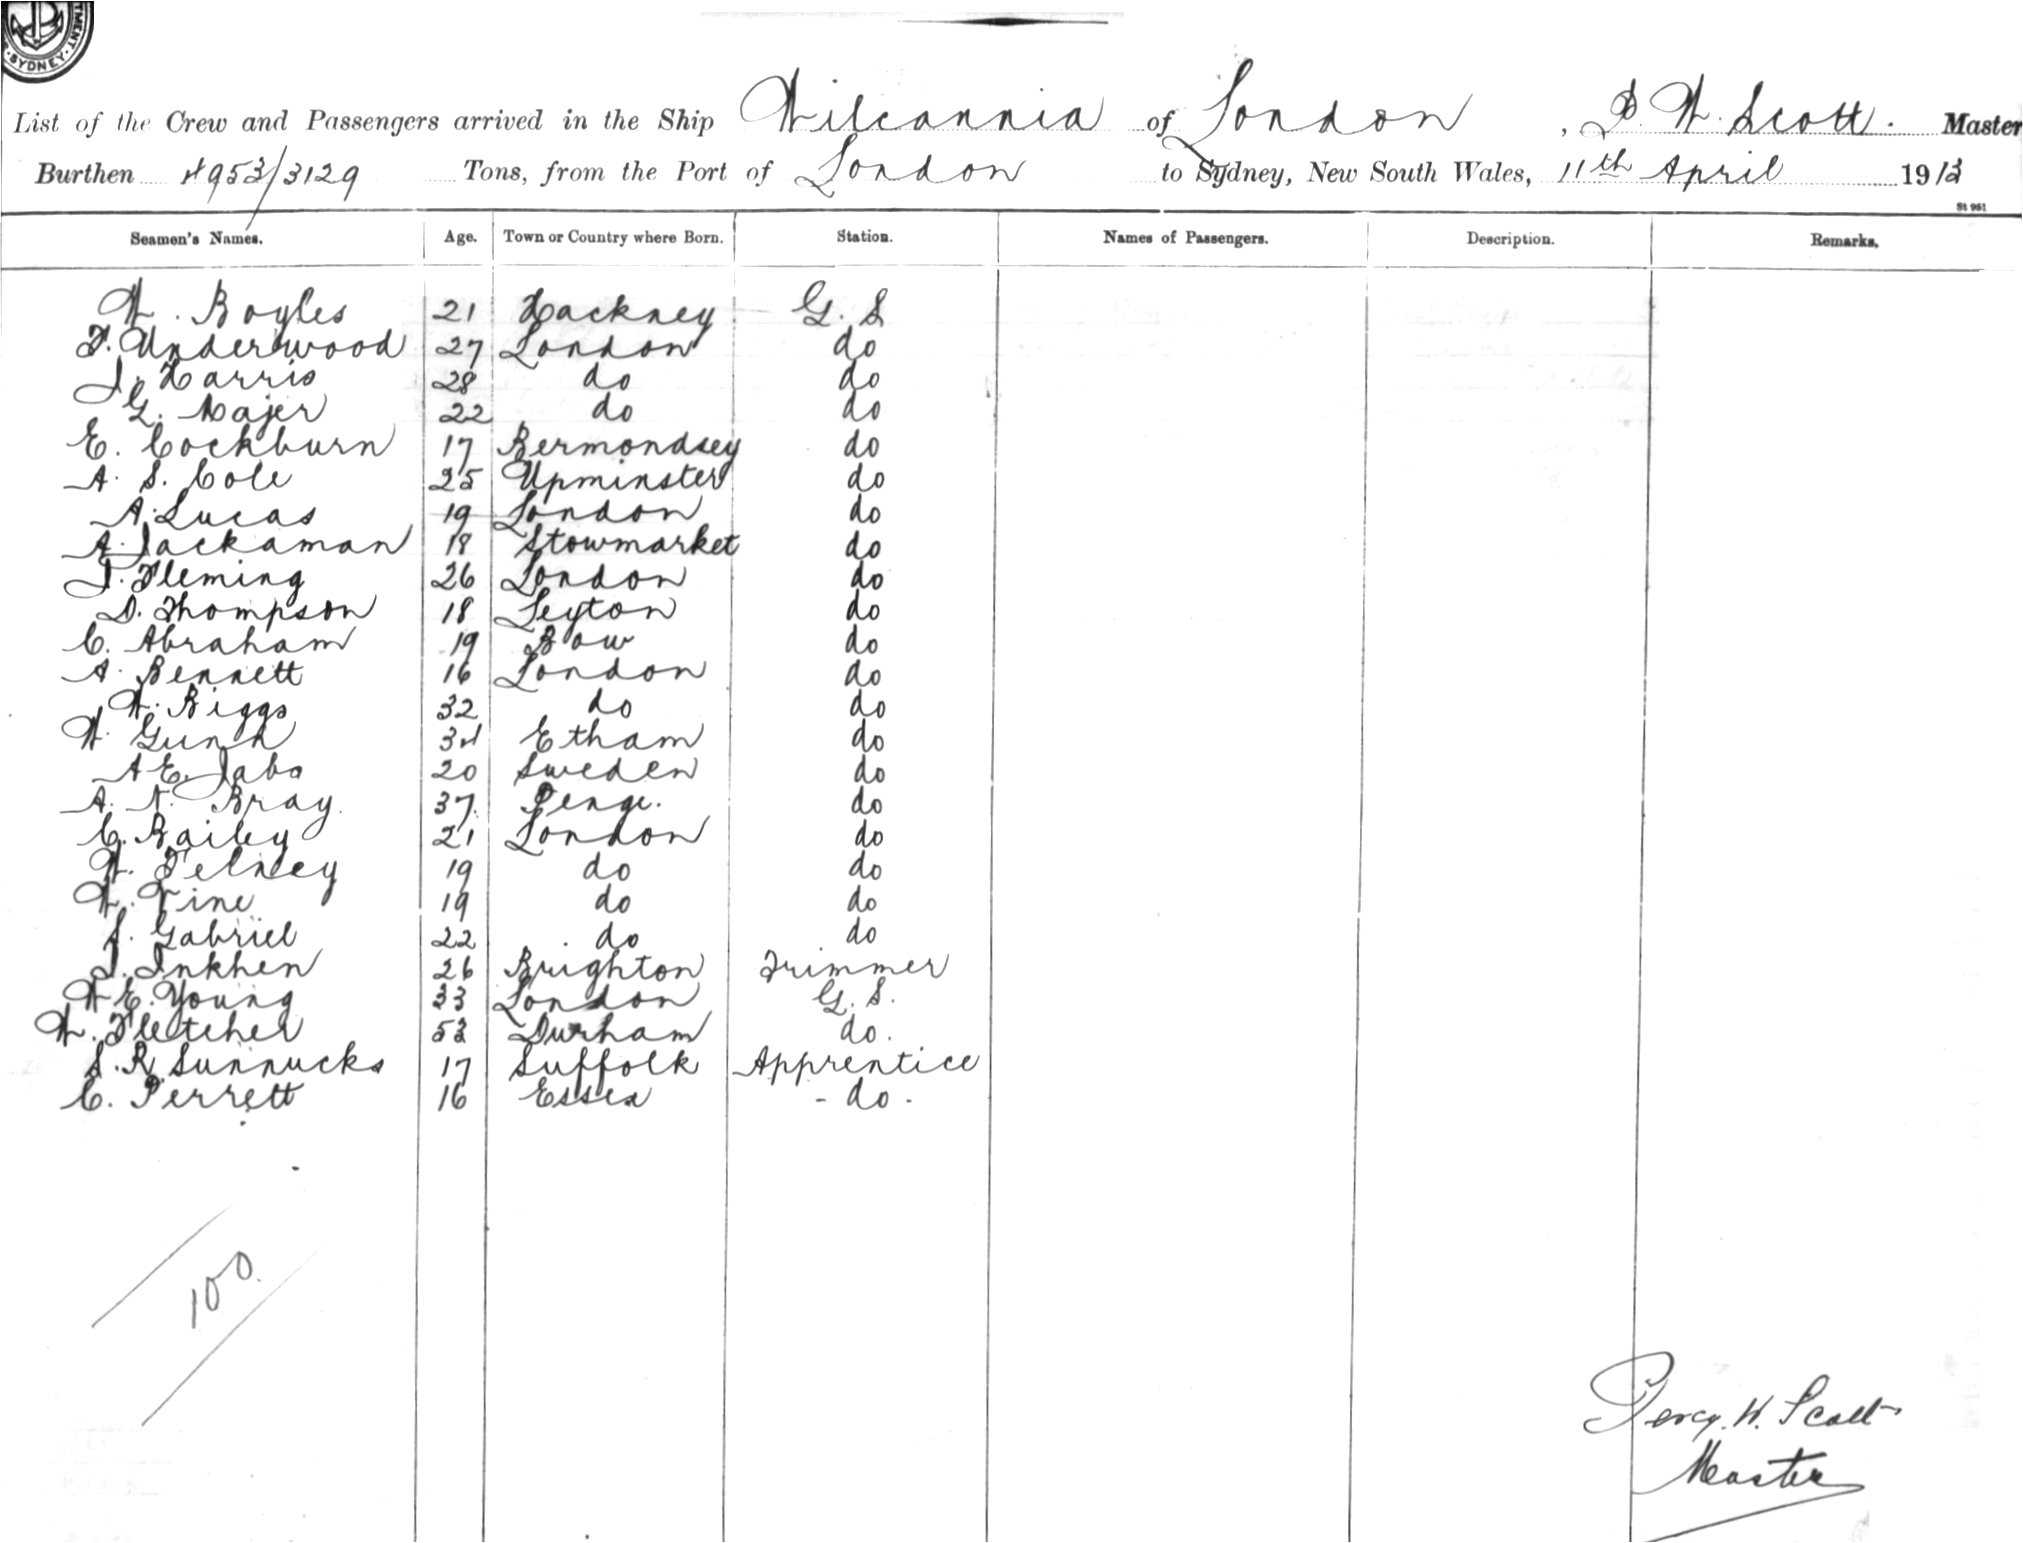 TMENT. SYDNEY.
List of the Crew and Passengers arrived in the Ship Wilcannia of London, P. W. Scott. Master
Burthen 4953/3129 Tons, from the Port of London to Sydney, New South Wales, 11th April 1913
St 961
Seamen's Names. Age. Town or Country where Born. Station. Names of Passengers. Description. Remarks.
W. Boyles 21 Hackney G. S
F. Underwood 27 London do
J. Harris 28 do do
G. Hajer 22 do do
E. Cockburn 17 Bermondsey do
A. S. Cole 25 Upminster do
A. Lucas 19 London do
A. Jackaman 18 Stowmarket do
J. Fleming 26 London do
D. Thompson 18 Leyton do
C. Abraham 19 Bow do
A. Bennett 16 London do
W. Biggs 32 do do
W. Gunn 34 Etham do
A E. Jabo 20 Sweden do
A. N. Bray. 37. Penge. do
C. Bailey 21 London do
W. 19 do do
W. Vine 19 do do
J. Gabriel 22 do do
J. Inkhen 26 Brighton Trimmer
W E. Young 33 London G. S.
W. Fletcher 53 Durham do.
S. R. Sunnucks 17 Suffolk Apprentice
C. Perrett 16 Essex - do -
100
Percy. W. Scott
Master